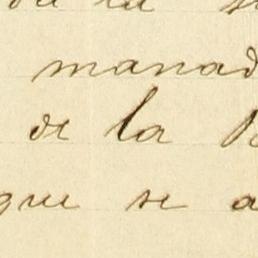 la
manad
de la
que se a